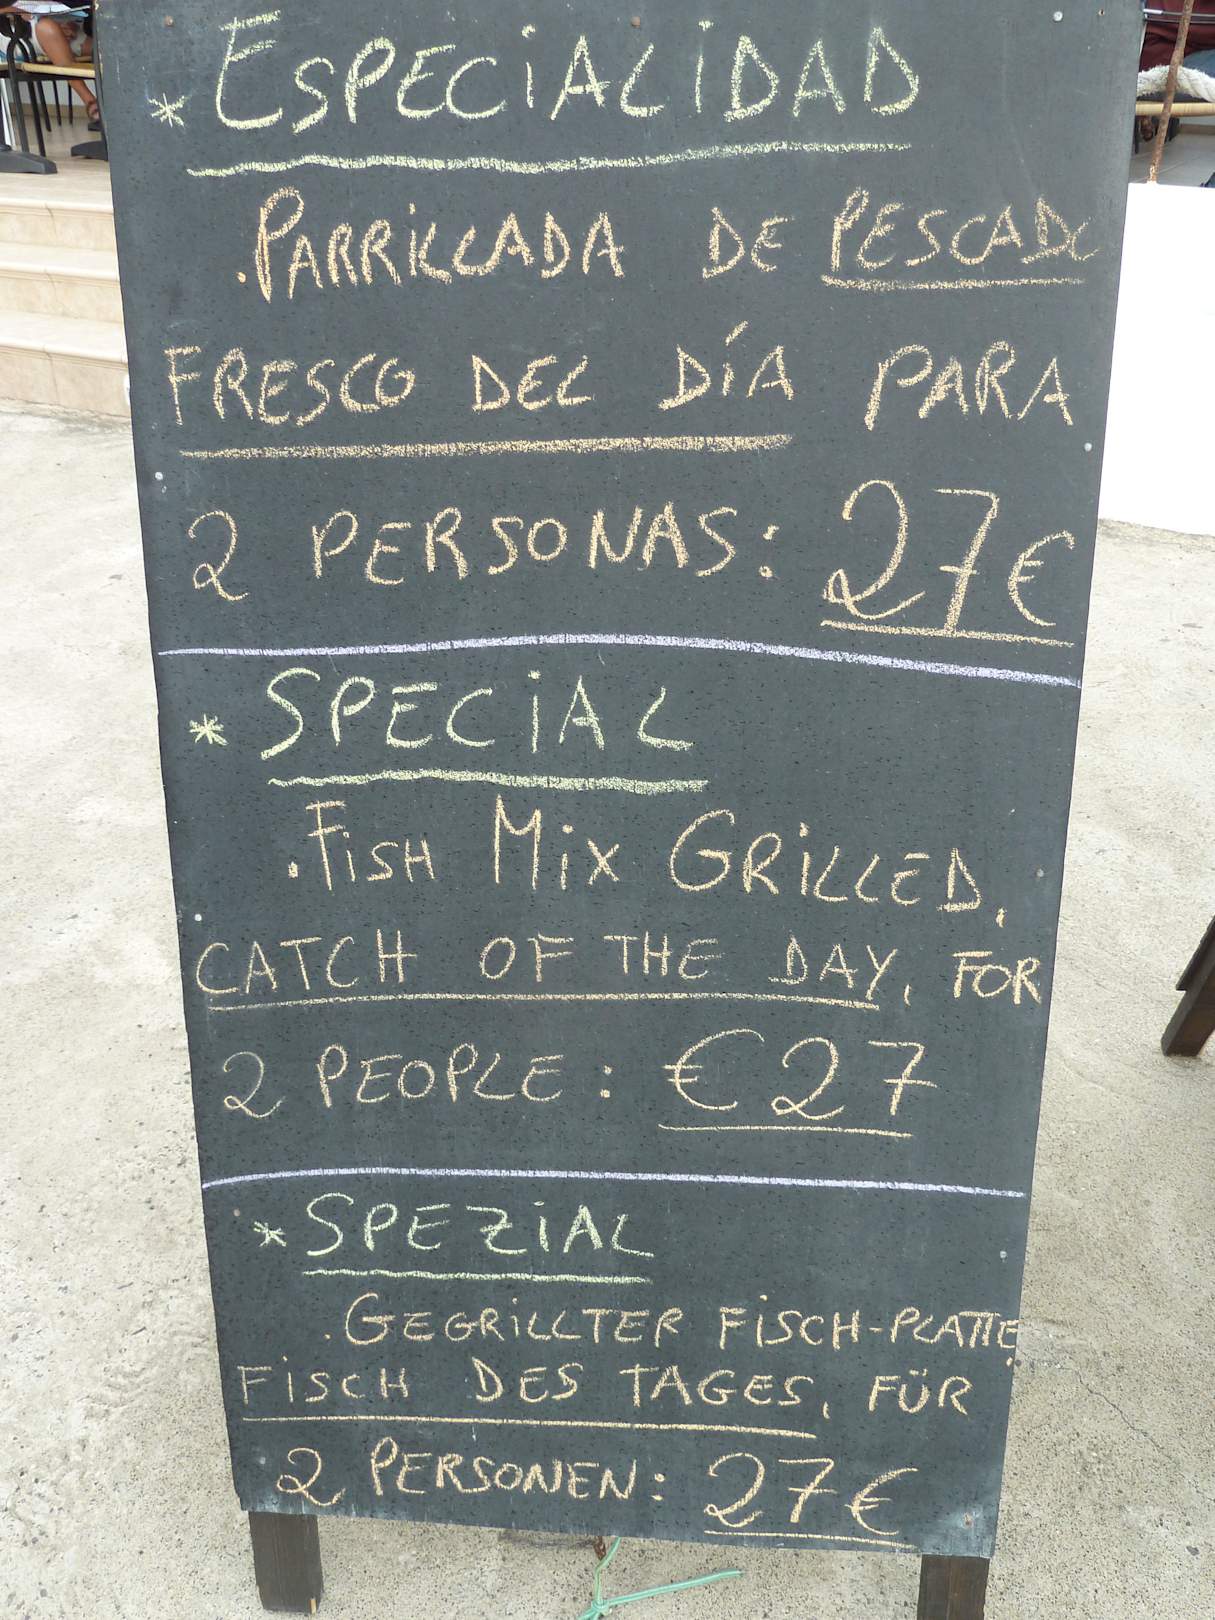 * ESPECIALIDAD
. PARRILLADA DE PESCADO
FRESCO DEL DÍA PARA
2 PERSONAS: 27€
* SPECIAL
. FISH MIX GRILLED,
CATCH OF THE DAY, FOR
2 PEOPLE: €27
* SPEZIAL
. GEGRILLTER FISCH-PLATTE,
FISCH DES TAGES, FÜR
2 PERSONEN: 27€